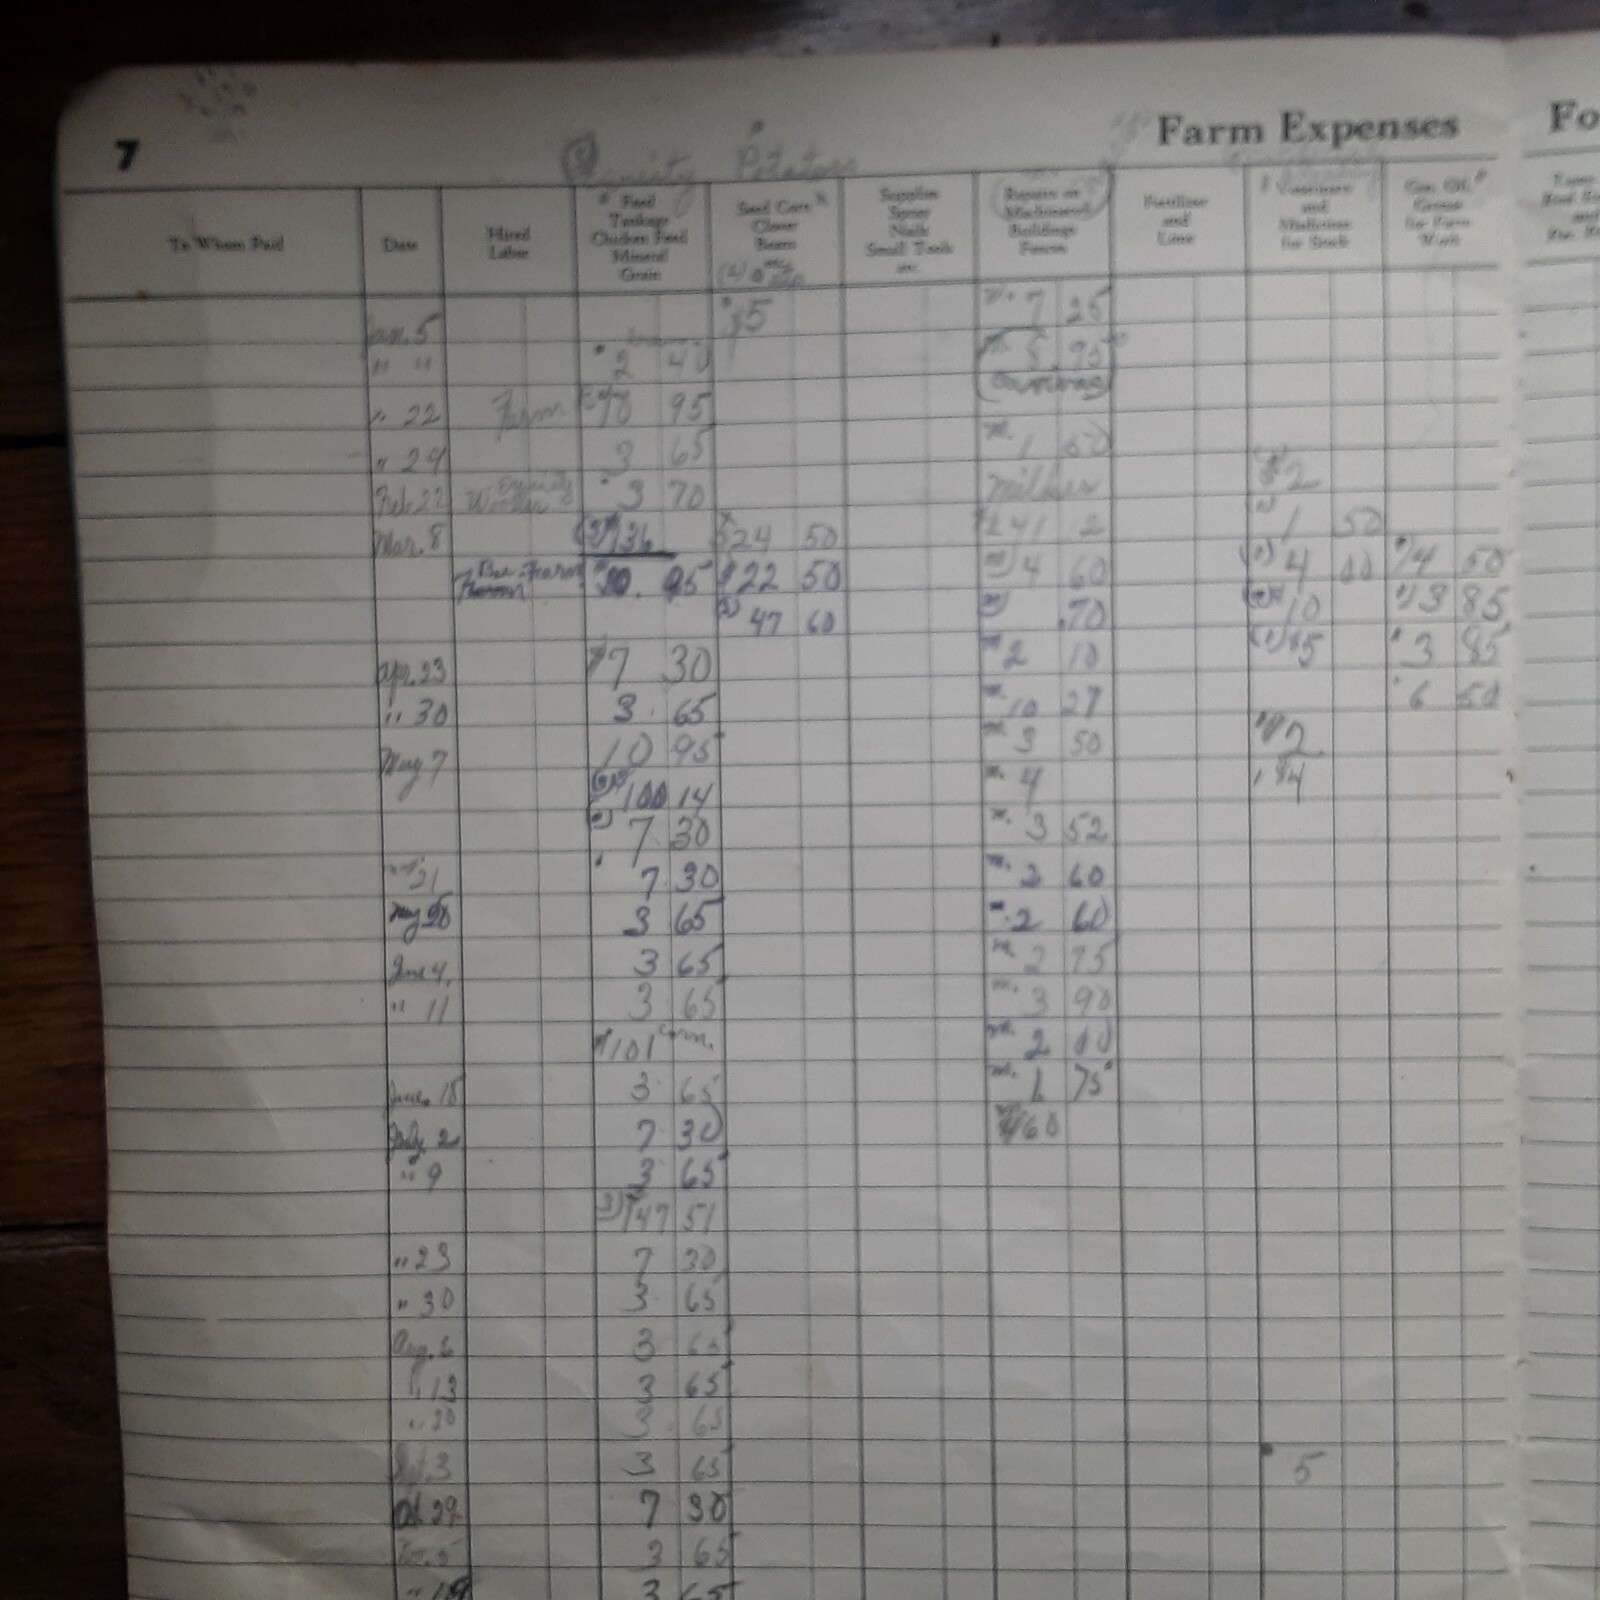 7 Farm Expenses Fo
Potatoes
To Whom Paid
Date
Hired
Labor
Feed
Tankage
Chicken Feed
Mineral
Grain
Seed Corn
Clover
Beans
etc.
Supplies
Spray
Nails
Small Tools
etc.
Repairs on
Machinery
Buildings
Fences
Fertilizer
and
Lime
Vaccines
and
Medicine
for Stock
Gas, Oil,
Grease
for Farm
Work
Jan. 5 $5 m. 7 25
" " 2 40 95
" 22 Farm 95
" 24 3 65 m. 1 50
Feb. 22 3 70 $2
Mar. 8 $24 50 1 50
Farm $22 50 4 60 (1) 4 00 4 50
47 60 .70 10 3 85
Apr. 23 $7 30 m 2 10 (1) $5 3 85
" 30 3 65 m. 10 27 6 50
May 7 10 95 m. 3 50 $2
100 14 m. 4 $4
7 30 m. 3 52
" 21 7 30 m. 2 60
May 3 65 m. 2 60
June 4, 3 65 m 2 75
" 11 3 65 m. 3 90
$101 m. 2 00
June 18 3 65 m. 1 75
July 2 7 30 60
" 9 3 65
147 51
" 23 7 30
" 30 3 65
Aug. 6 3 65
" 13 3 65
" 20 3 65
3 3 65 5
Oct. 29 7 30
5 3 65
" 3 65